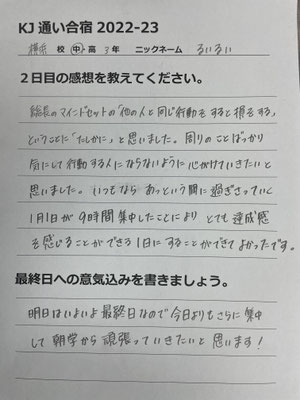 KJ 通い合宿 2022-23
横浜 校 中・高 3年 ニックネーム るいるい
２日目の感想を教えてください。
総長のマインドセットの「他の人と同じ行動をすると損をする」
ということに「たしかに」と思いました。周りのことばっかり
気にして行動する人にならないように心がけていきたいと
思いました。いつもなら あっという間に過ぎさっていく
1月1日が 9時間 集中したことにより とても 達成感
を感じることができる1日にすることができてよかったです。
最終日への意気込みを書きましょう。
明日はいよいよ 最終日なので 今日よりもさらに 集中
して 朝学から 頑張っていきたいと 思います！